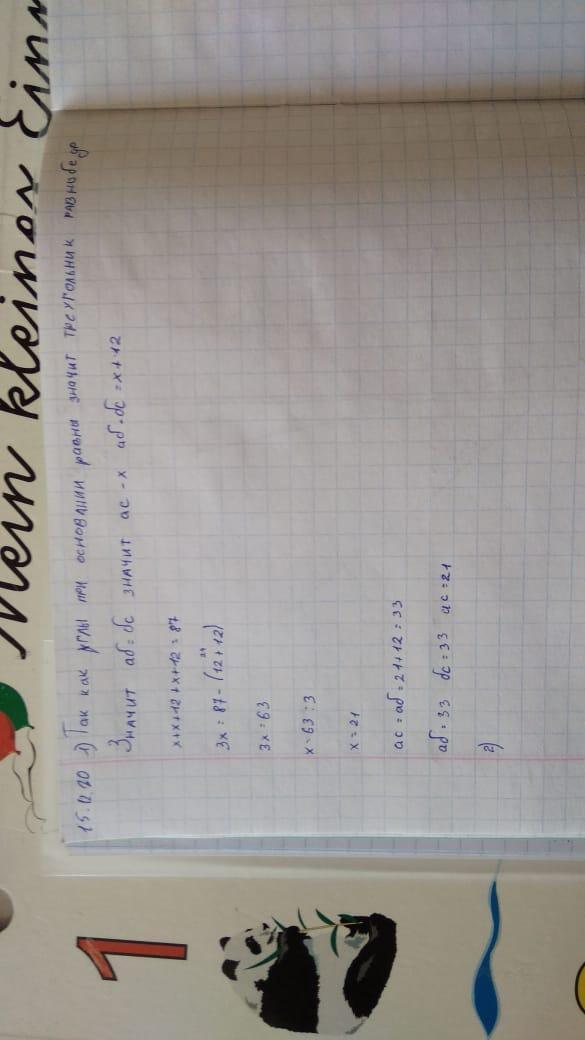 Mein kleiner Ein
1
15.12.20 1) Так как углы при основании равны значит треугольник равнобедр
Значит аб=бс значит ас - х аб=бс = х+12
х+х+12+х+12=87
24
3х = 87 - (12+12)
3х = 63
х = 63 : 3
х = 21
ас = аб = 21+12 = 33
аб = 33 бс = 33 ас = 21
2)